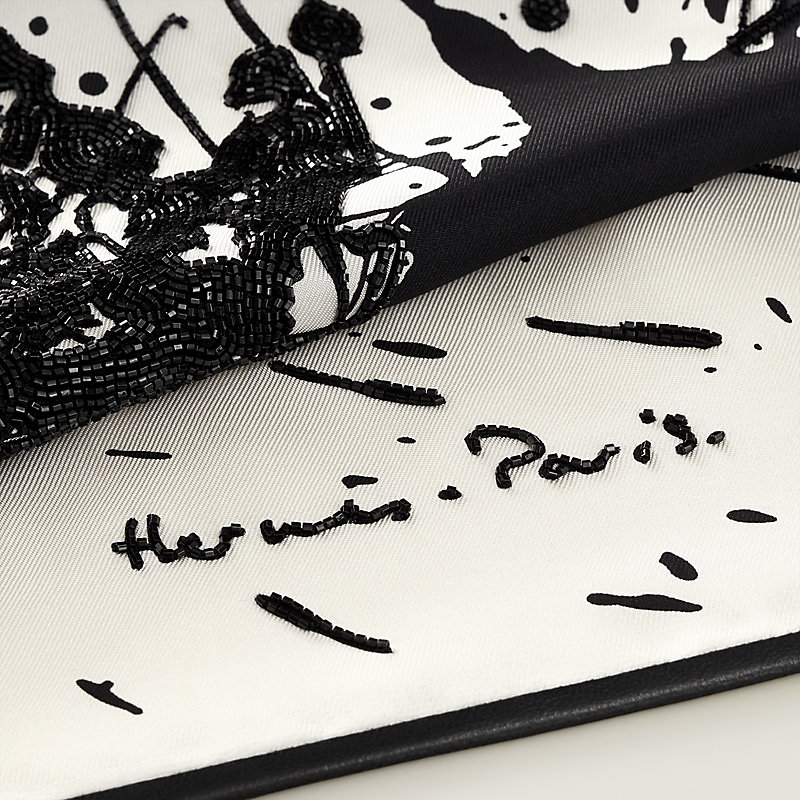 Hermès. Paris.